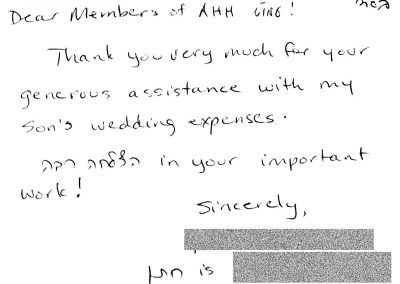 Dear Members of AHH !
Thank you very much for your
generous assistance with my
son's wedding expenses.
הצלחה רבה in your important
work!
Sincerely,
חתן is